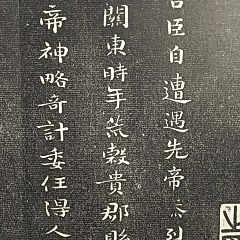 言臣自遭遇先帝忝列
關東時年荒穀貴郡縣
帝神略奇計委任得人